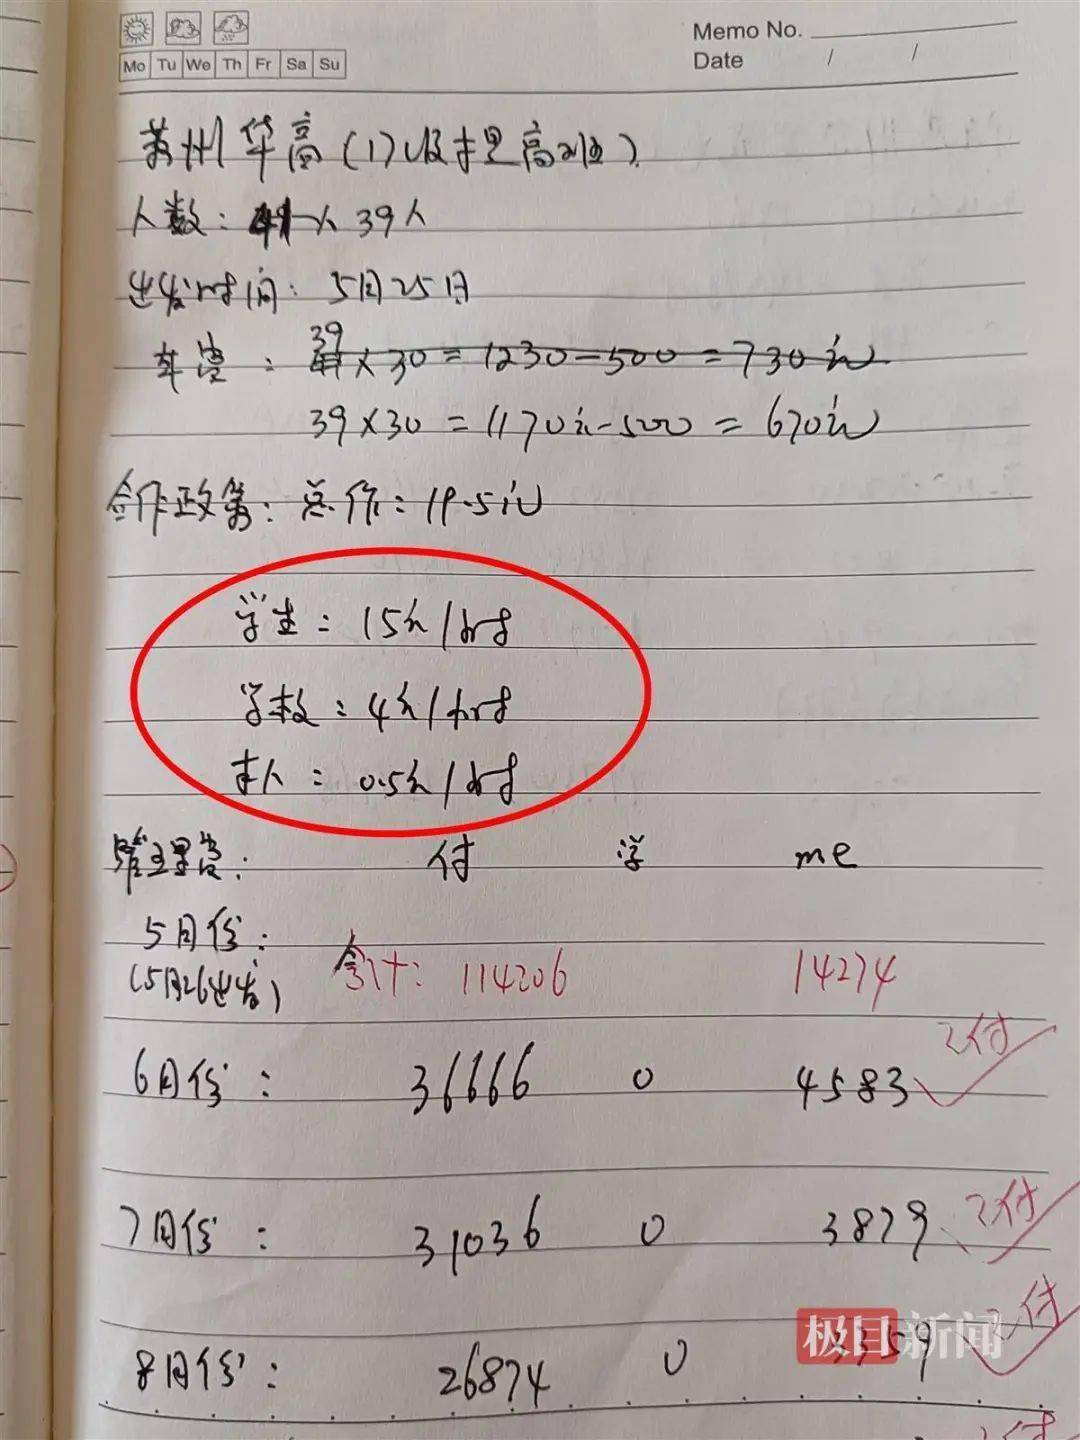 Memo No.
Mo Tu We Th Fr Sa Su
Date / /
苏州华高(17级提高班)
人数: 41人 39人
出发时间: 5月25日
车费: 39 41×30=1230-500=730元
39×30=1170元-500=670元
合作政策: 总价: 19.5元
学生: 15元/时
学校: 4元/时
本人: 0.5元/时
管理费: 付 学 me
5月份:
(5月26出发) 合计: 114206 14274
已付
6月份: 36666 0 4583
已付
7月份: 31036 0 3879
已付
极目新闻
8月份: 26874 0 3359